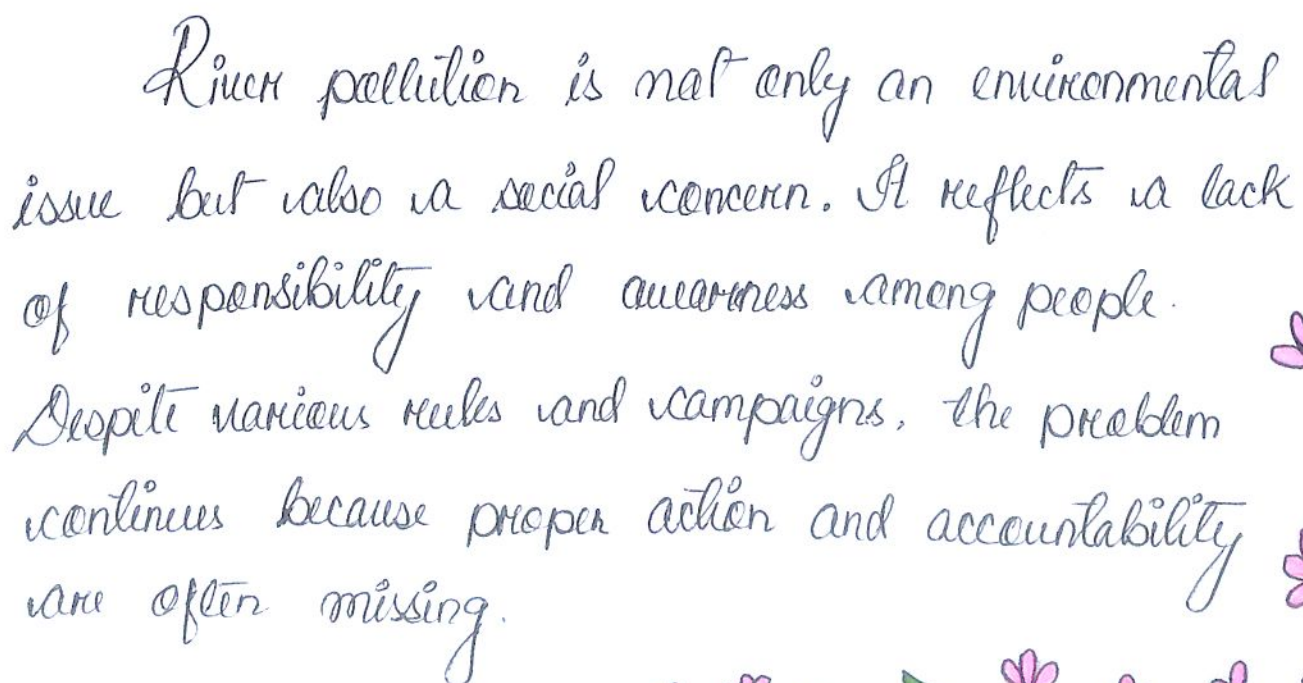 River pollution is not only an environmental
issue but also a social concern. It reflects a lack
of responsibility and awareness among people.
Despite various rules and campaigns, the problem
continues because proper action and accountability
are often missing.